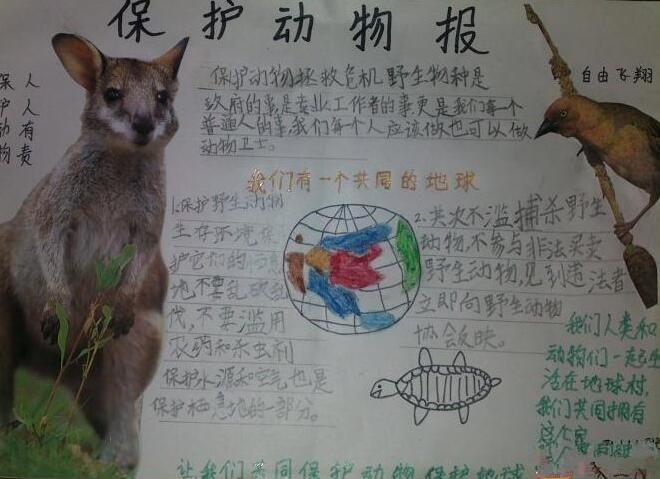 保护动物报
保护动物
人人有责
自由飞翔
保护动物拯救危机野生物种是
政府的事是专业工作者的事更是我们每一个
普通人的事,我们每个人应该做也可以做
动物卫士。
我们有一个共同的地球
1.保护野生动物
生存环境保
护它们的
地不要乱砍乱
伐,不要滥用
农药和杀虫剂
保护水源和空气也是
保护栖息地的一部分。
2.其次不滥捕杀野生
动物,不参与非法买卖
野生动物,见到违法者
立即向野生动物
协会反映。
我们人类和
动物们一起生
活在地球村,
我们共同拥有
这个家
让我们共同保护动物保护地球